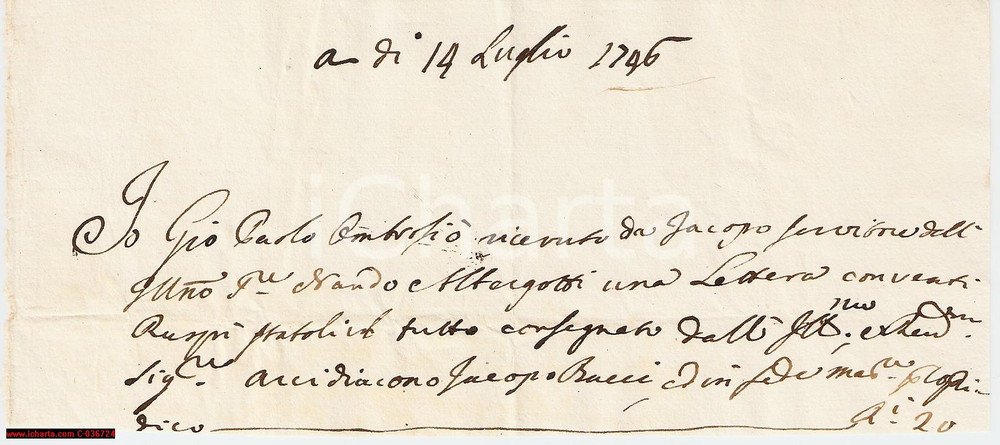 a di 14 Luglio 1746
Io Gio Paolo Ombrosio ricevuto da Jacopo servitore dell'
Illmo Sre Nando Albergotti una Lettera con venti
Ruspi tutto consegnato dall' Illmo, e Revmo
Sigre Arcidiacono Jacopo Bacci ed in fede
dico Ri 20
iCharta
www.icharta.com C-036724